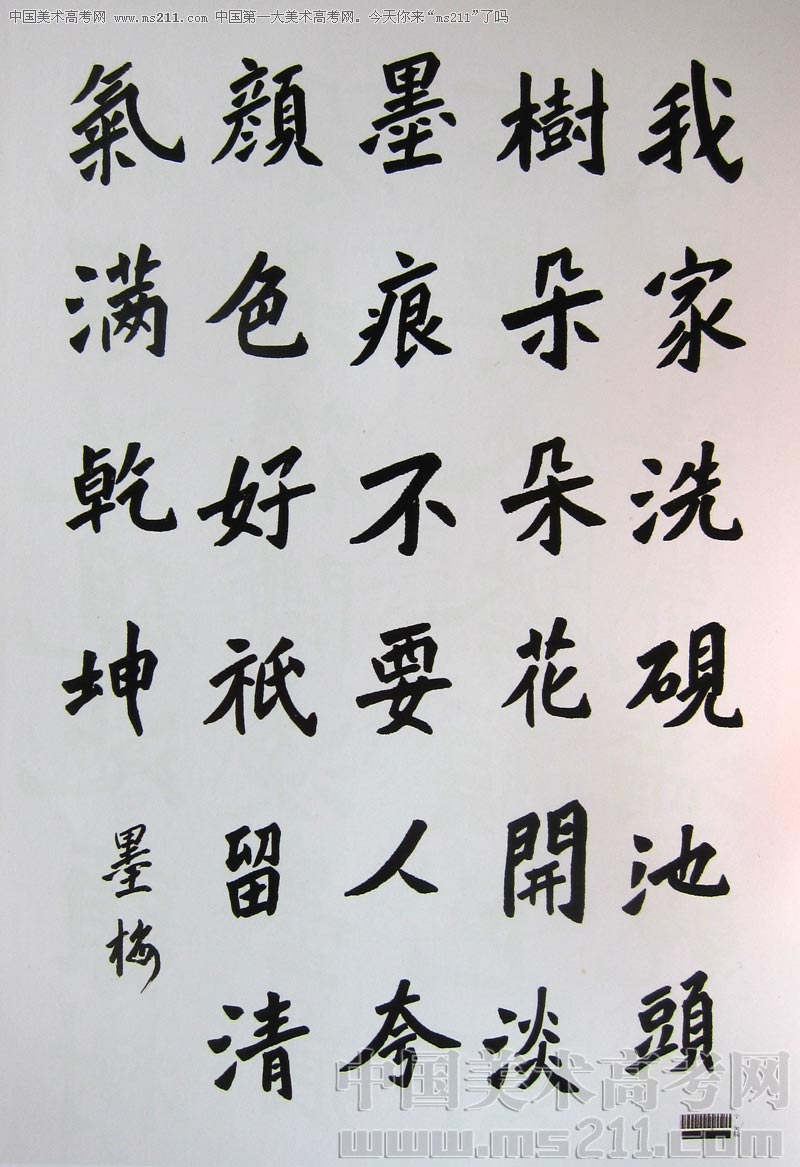 中国美术高考网 www.ms211.com 中国第一大美术高考网。今天你来“ms211”了吗
我家洗硯池頭
樹朵朵花開淡
墨痕不要人夸
顔色好祇留清
氣满乾坤
墨梅
中国美术高考网
www.ms211.com